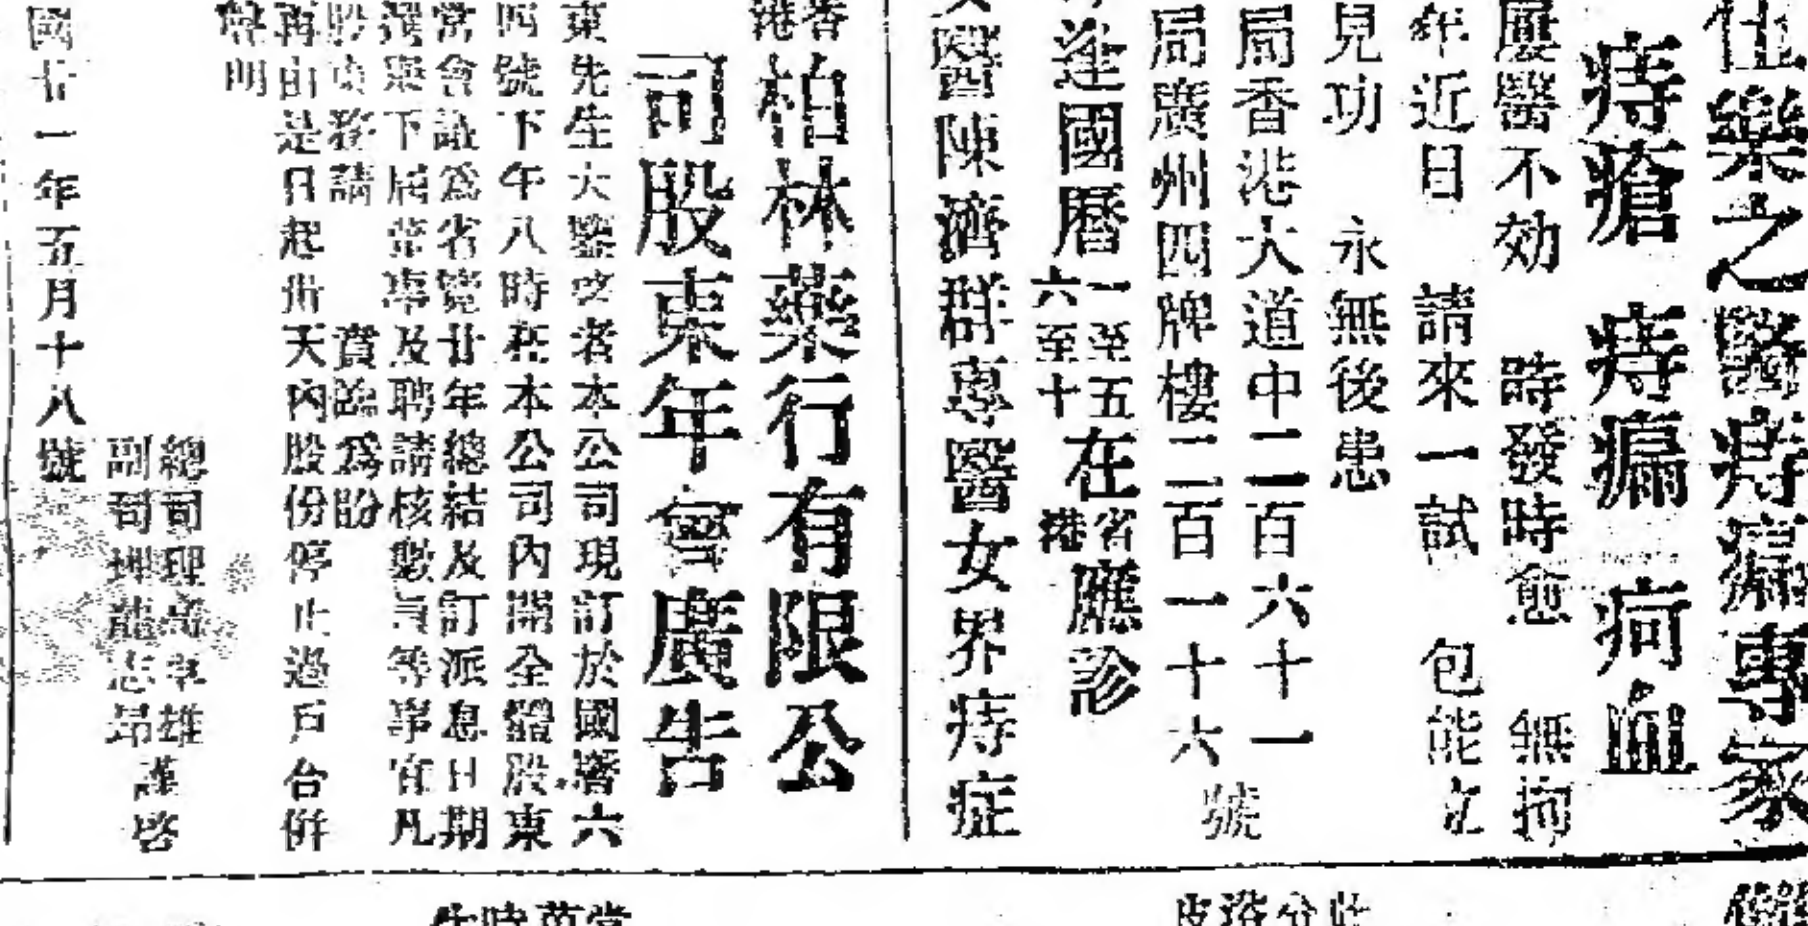 任樂之醫痔瘡專家
痔瘡 痔漏 疴血
屢醫不効 時發時愈 無拘
年近日 請來一試 包能立
見功 永無後患
局香港大道中二百六十一
局廣州四牌樓二百一十六
號
逢國曆一至五六至十在省港應診
女醫陳濟群專醫女界痔症
香港柏林藥行有限公
司股東年會廣告
東先生大鑒啓者本公司現訂於國曆六
四號下午八時在本公司內開全體股東
常會議爲省覽廿年總結及訂派息日期
選舉下屆董事及聘請核數員等事宜凡
股東務請 賞臨爲盼
再由是日起卅天內股份停止過戶合併
聲明
總司理 卓雄
副司理龍志昂
謹啓
國廿一年五月十八號